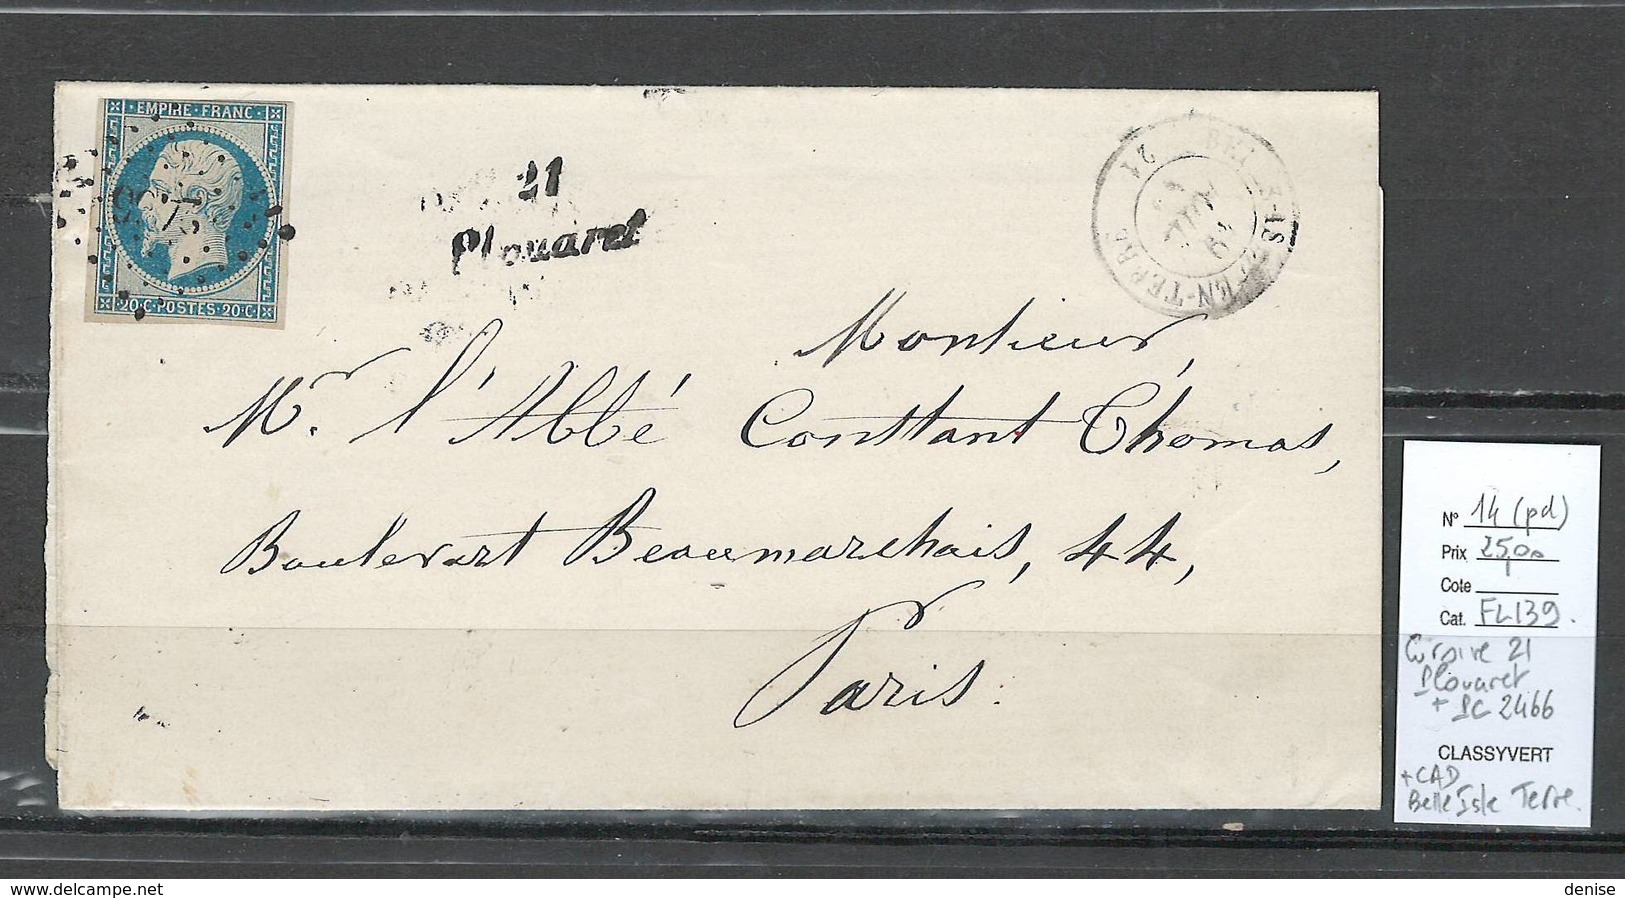 EMPIRE · FRANC ·
· 20 · C · POSTES · 20 · C ·
21
Plouaret
21
EN-TERRE
Monsieur,
Mr. l'Abbé Constant Thomas,
Boulevart Beaumarchais, 44,
Paris.
N° 14 (pd)
Prix 25,00
Cote
Cat. FL139.
Cursive 21
Plouaret
+ PC 2466
CLASSYVERT
+ CAD
Belle Isle Terre.
delcampe.net
denise